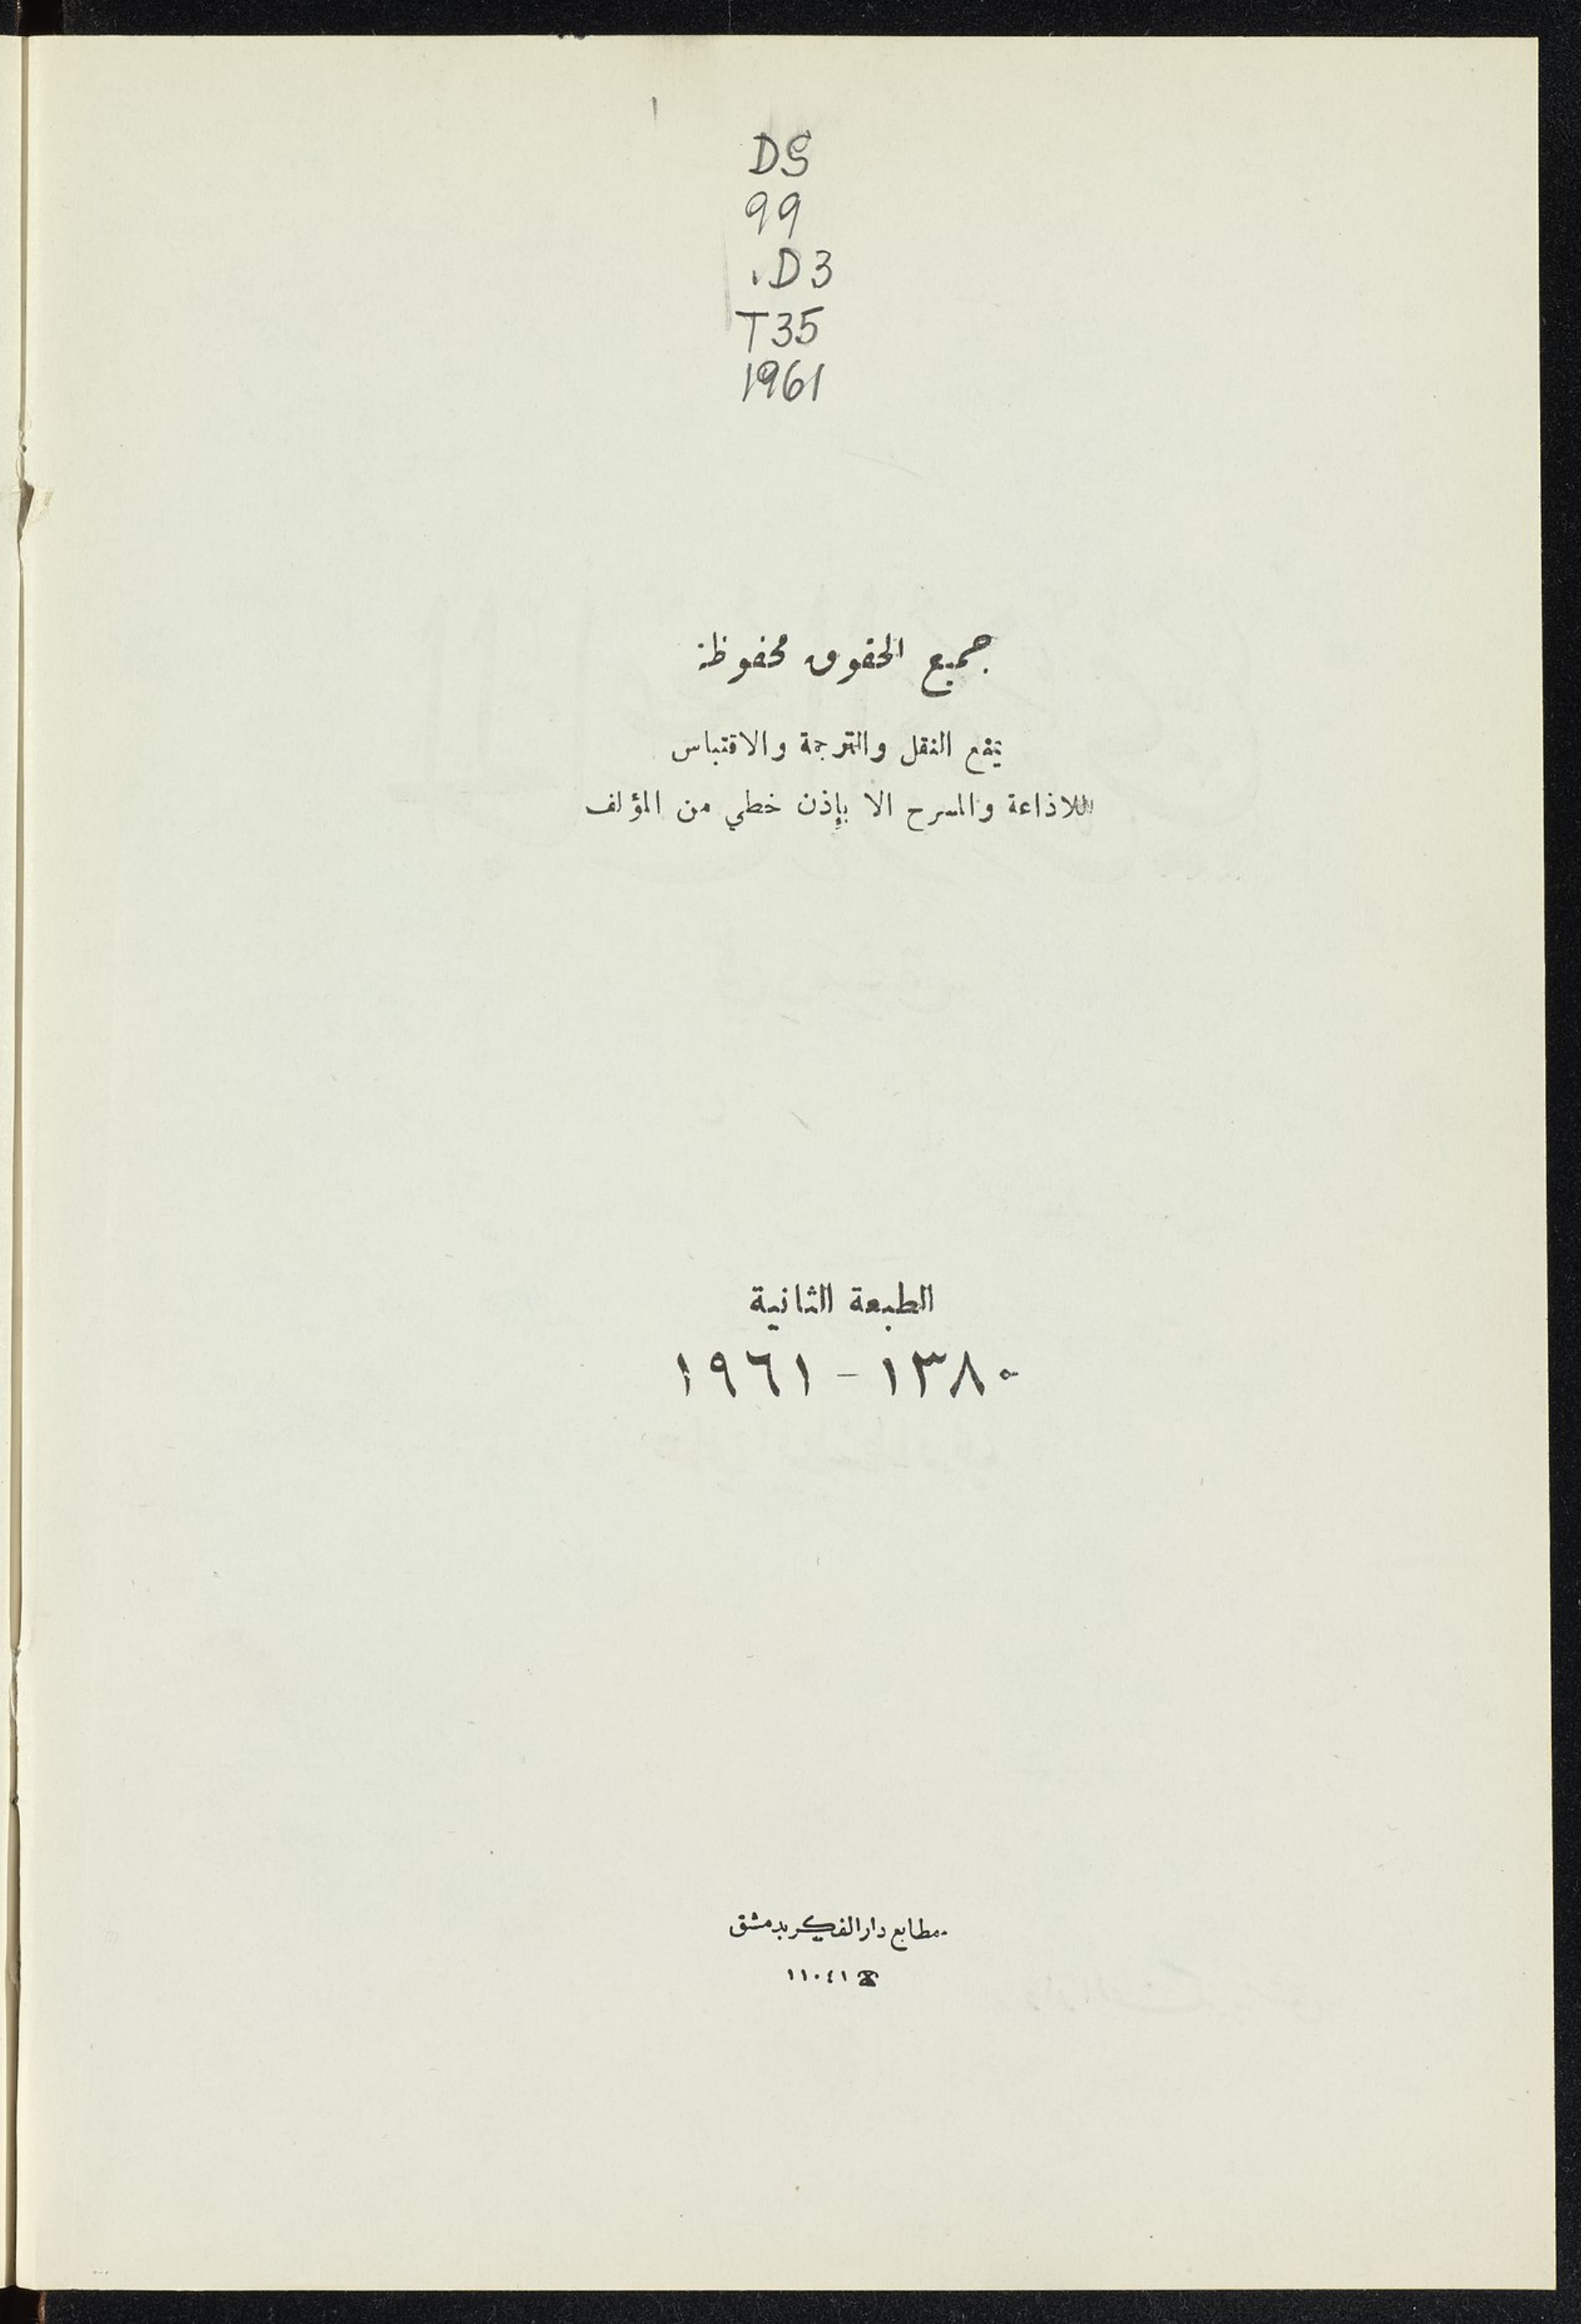 DS
99
.D3
T35
1961
جميع الحقوق محفوظة
يمنع النقل والترجمة والاقتباس
للاذاعة والمسرح الا بإذن خطي من المؤلف
الطبعة الثانية
١٣٨٠ - ١٩٦١
مطابع دار الفكر بدمشق
☎ ١١٠٤١